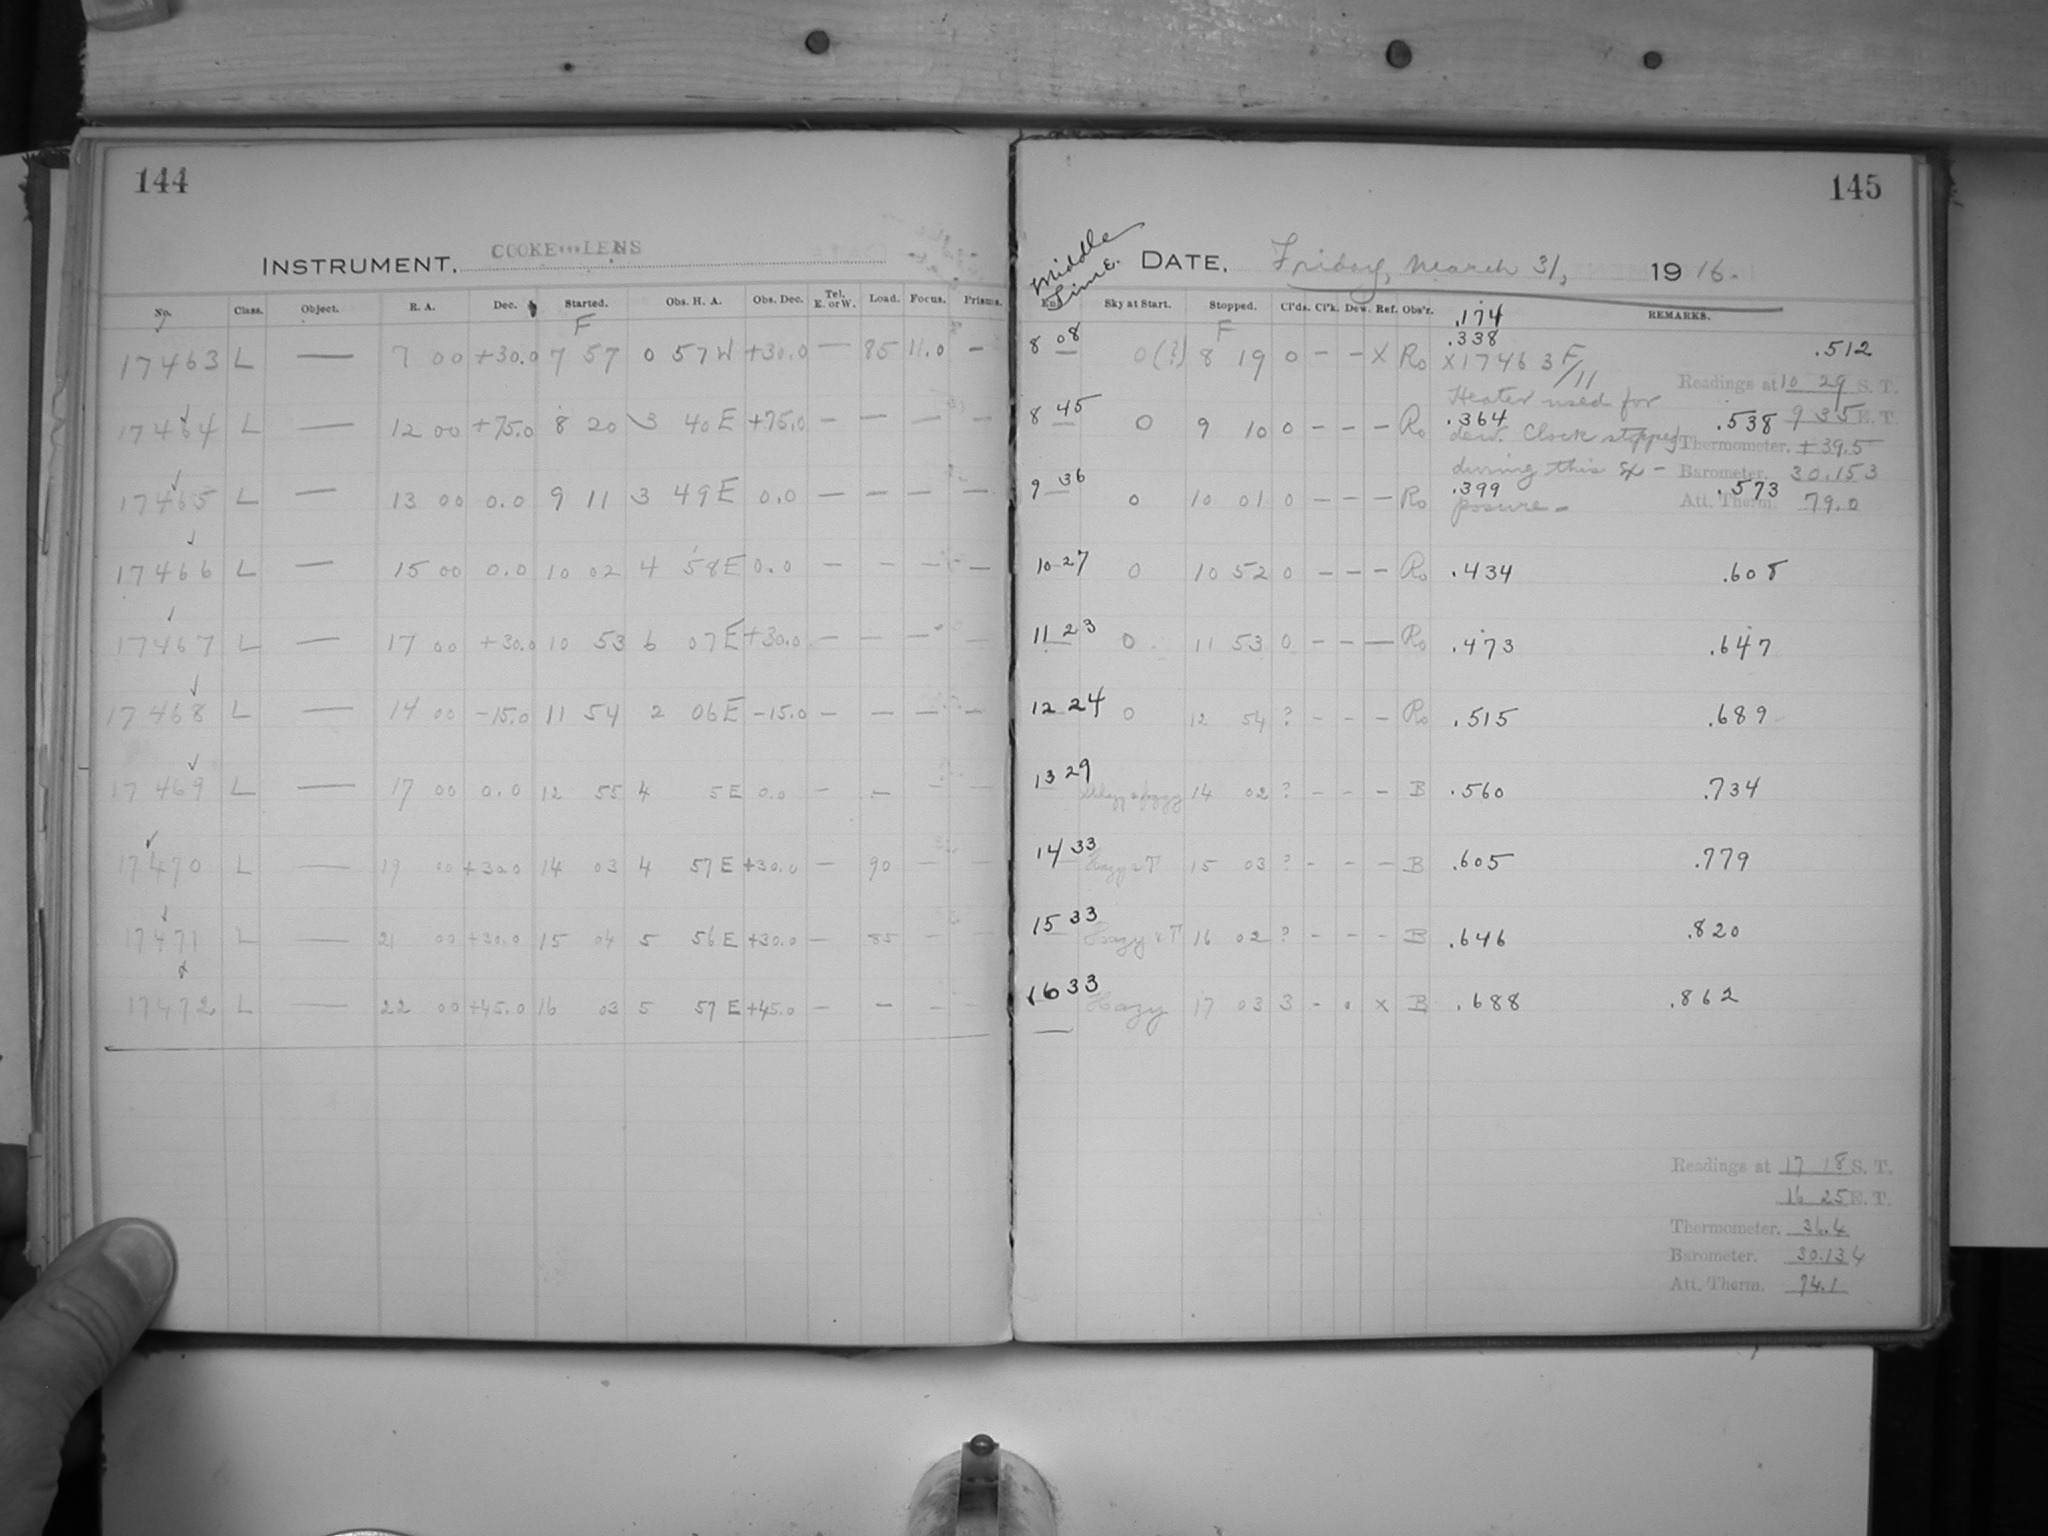 144
INSTRUMENT. COOKE LENS
No. Class. Object. R. A. Dec. Started. Obs. H. A. Obs. Dec. Tel. E. or W. Load. Focus. Prisms.
F
17463 L — 7 00 +30.0 7 57 0 57 W +30.0 — 85 11.0 —
17464 L — 12 00 +75.0 8 20 3 40 E +75.0 — — — —
17465 L — 13 00 0.0 9 11 3 49 E 0.0 — — — —
17466 L — 15 00 0.0 10 02 4 58 E 0.0 — — — —
17467 L — 17 00 +30.0 10 53 6 07 E +30.0 — — — —
17468 L — 14 00 -15.0 11 54 2 06 E -15.0 — — — —
17469 L — 17 00 0.0 12 55 4 5 E 0.0 — — — —
17470 L — 19 00 +30.0 14 03 4 57 E +30.0 — 90 — —
17471 L — 21 00 +30.0 15 04 5 56 E +30.0 — 85 — —
17472 L — 22 00 +45.0 16 03 5 57 E +45.0 — — — —
145
Middle Time.
DATE. Friday, March 31, 1916.
End Sky at Start. Stopped. Cl'ds. Cl'k. Dew. Ref. Obs'r. REMARKS.
.174
F
8 08 0(?) 8 19 0 — — X Ro .338 .512
X17463 F/11
Readings at 10 29 S. T.
Heater used for
8 45 0 9 10 0 — — — Ro .364 .538 9 35 E. T.
dew. Clock stopped Thermometer. +39.5
during this ex- Barometer. 30.153
9 36 0 10 01 0 — — — Ro .399 .573 Att. Therm. 79.0
posure—
10 27 0 10 52 0 — — — Ro .434 .608
11 23 0 11 53 0 — — — Ro .473 .647
12 24 0 12 54 ? — — — Ro .515 .689
13 29 14 02 ? — — — B .560 .734
14 33 Hazy & T 15 03 ? — — — B .605 .779
15 33 Hazy & T 16 02 ? — — — B .646 .820
16 33 Hazy 17 03 3 — 0 X B .688 .862
Readings at 17 18 S. T.
16 25 E. T.
Thermometer. 36.4
Barometer. 30.134
Att. Therm. 74.1